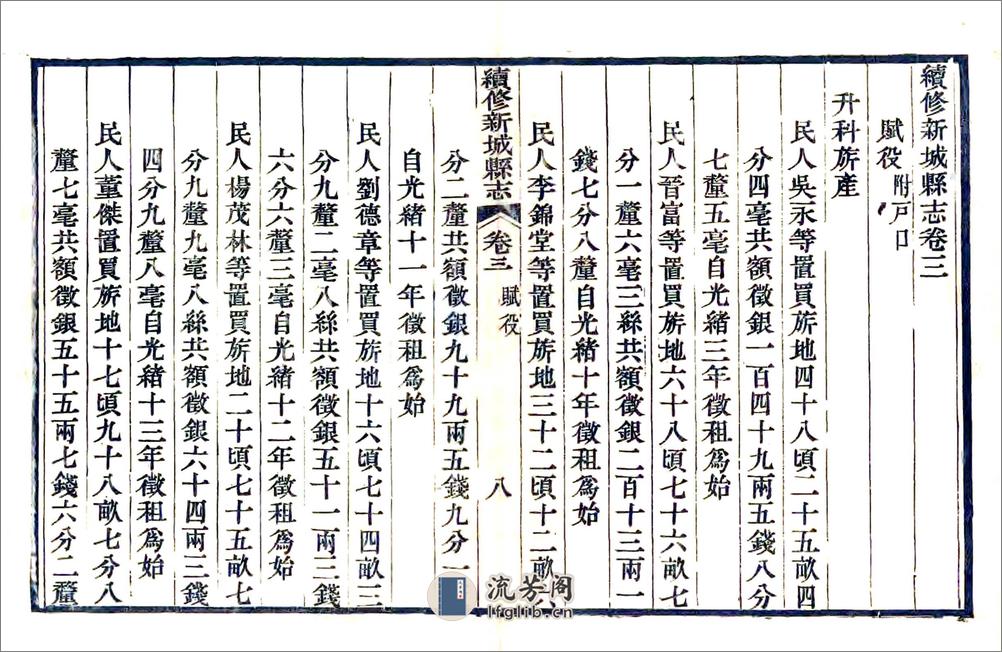 續修新城縣志卷三
賦役 附戸口
升科旂產
民人吳永等置買旂地四十八頃二十五畝四
分四毫共額徵銀一百四十九兩五錢八分
七釐五毫自光緒三年徵租爲始
民人晉富等置買旂地六十八頃七十六畝七
分一釐六毫三絲共額徵銀二百十三兩一
錢七分八釐自光緒十年徵租爲始
民人李錦堂等置買旂地三十二頃十二畝
續修新城縣志 卷三 賦役 八
分二釐共額徵銀九十九兩五錢九分一
自光緒十一年徵租爲始
民人劉德章等置買旂地十六頃七十四畝三
分九釐二毫八絲共額徵銀五十一兩三錢
六分六釐三毫自光緒十二年徵租爲始
民人楊茂林等置買旂地二十頃七十五畝七
分九釐九毫八絲共額徵銀六十四兩三錢
四分九釐八毫自光緒十三年徵租爲始
民人董傑置買旂地十七頃九十八畝七分八
釐七毫共額徵銀五十五兩七錢六分二釐
流芳阁
lfglib.cn